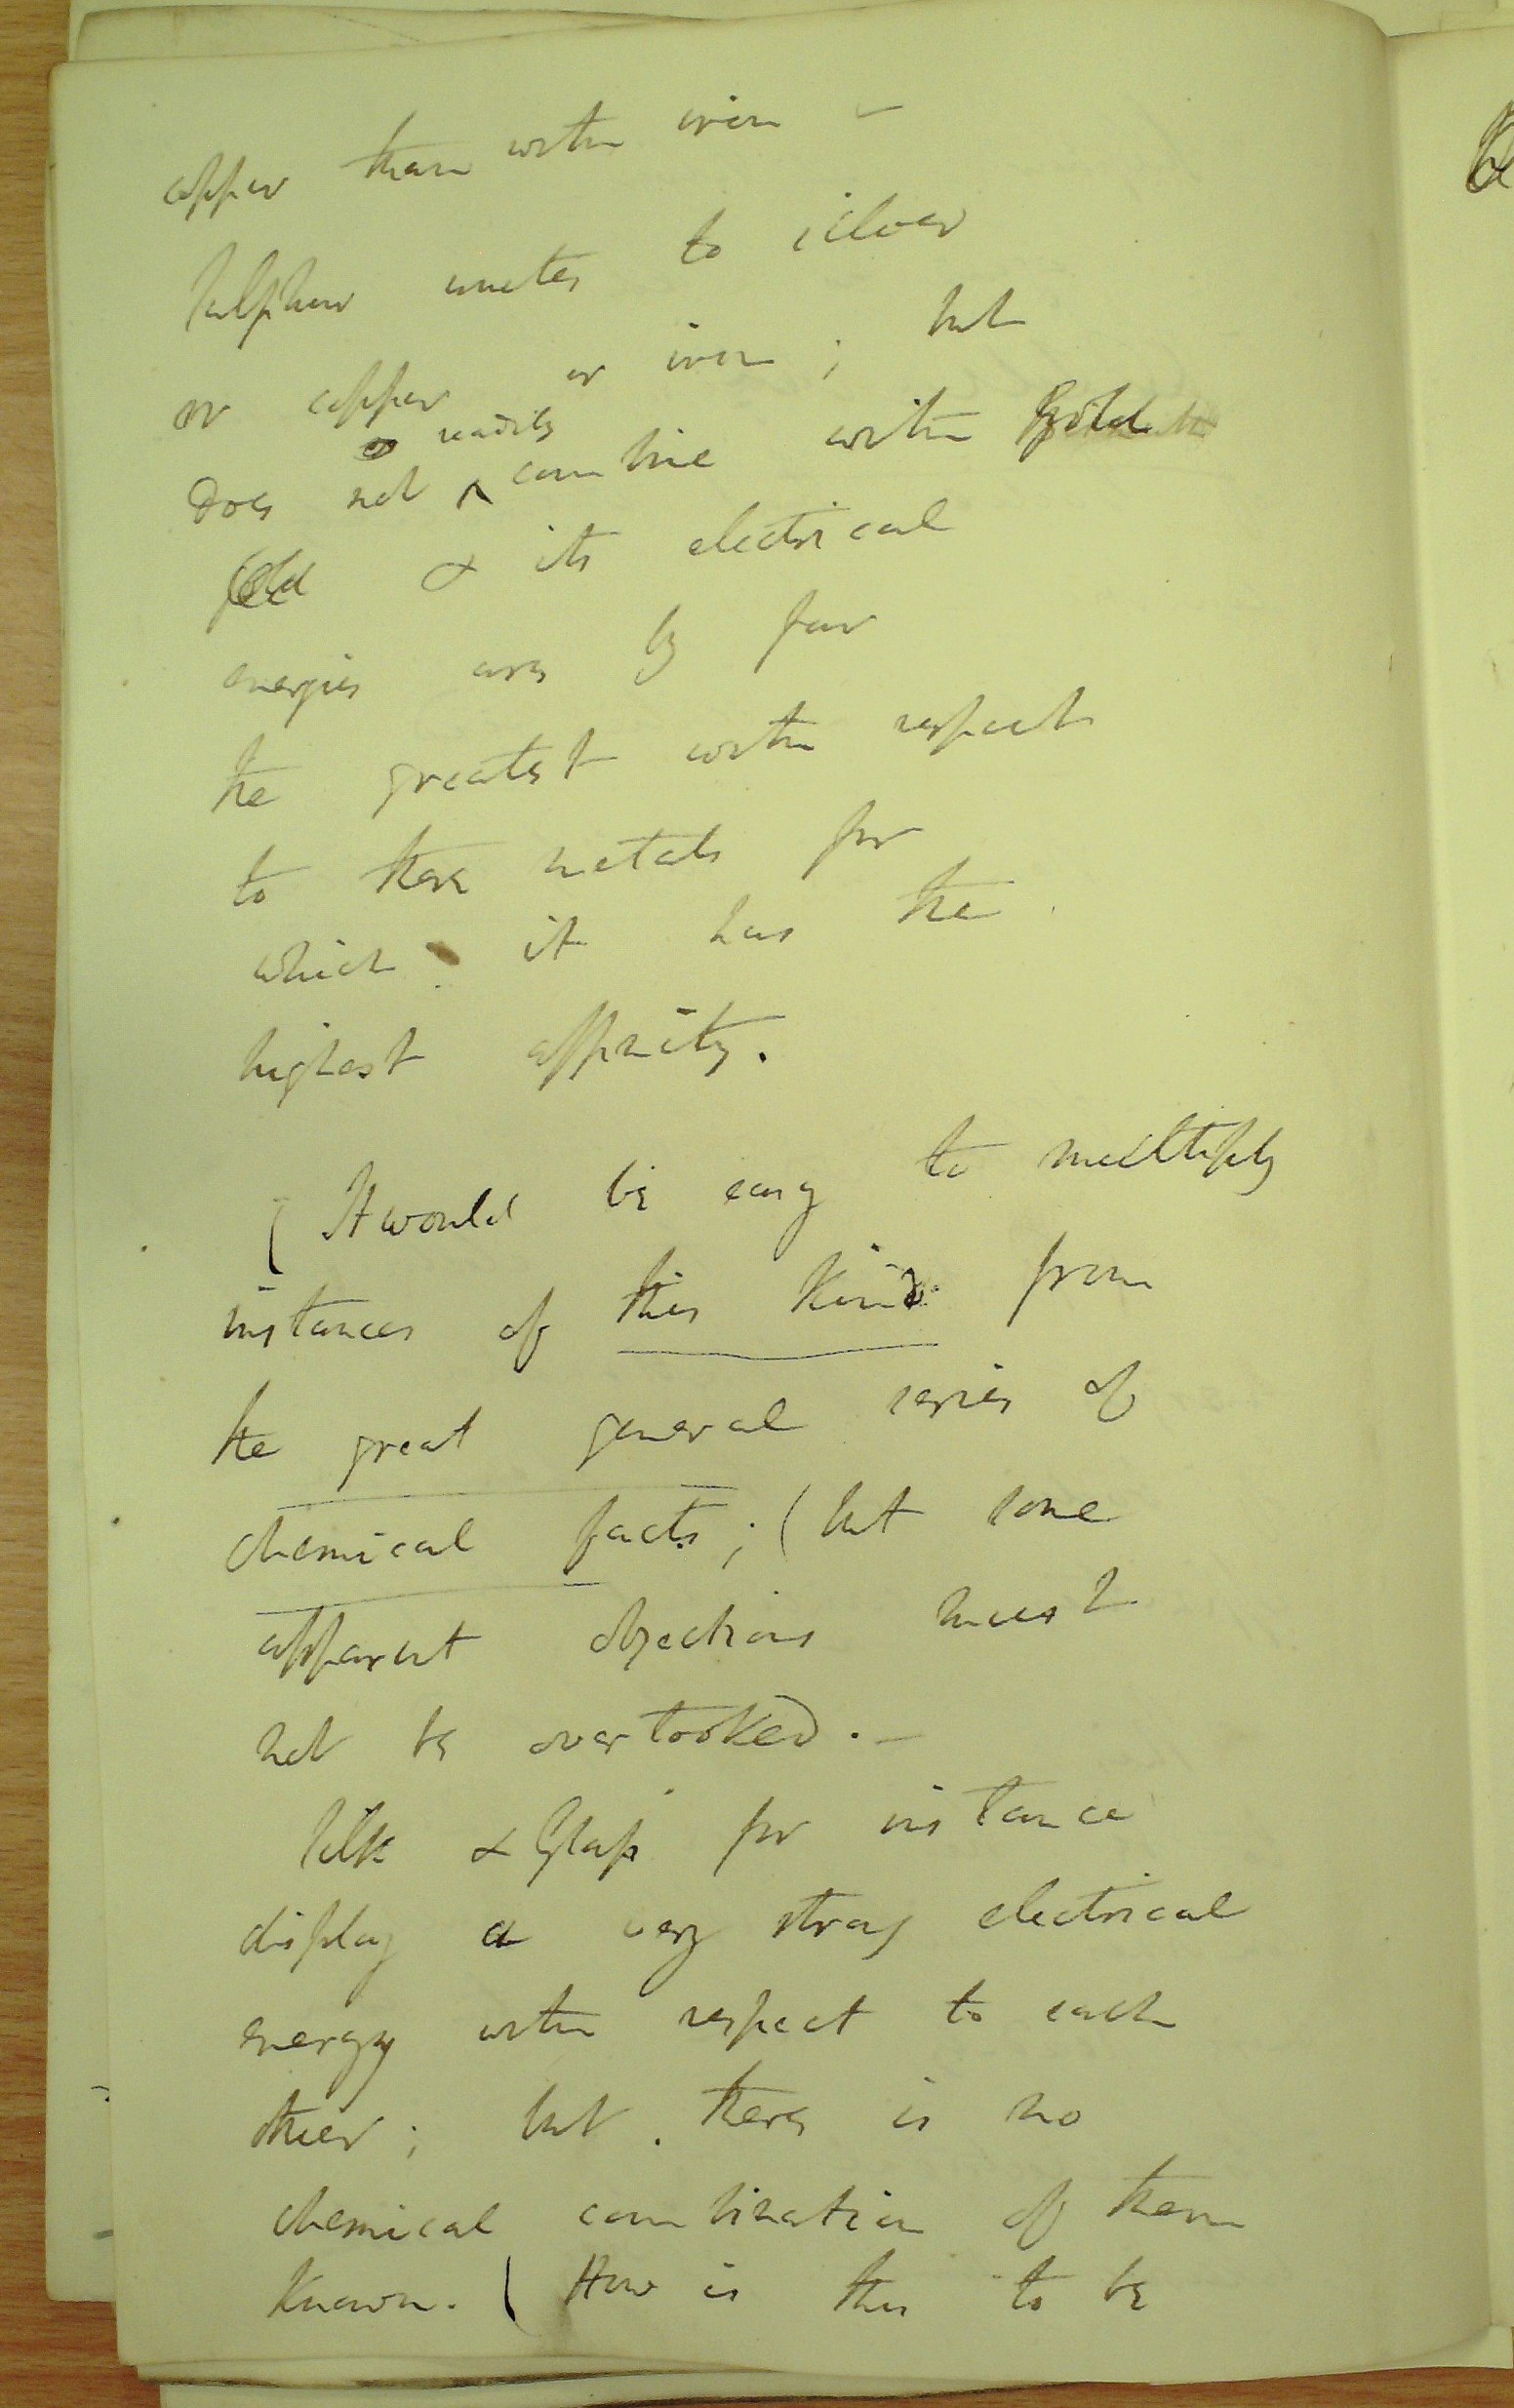 copper than with iron –
Sulphur unites to silver
or copper or iron ; but
readily
does not ^ combine with Gold
& its electrical
energies are by far
the greatest with respect
to those metals for
which it has the
highest affinity.
( It would be easy to multiply
instances of this kind from
the great general series of
chemical facts ; ( but some
apparent objections must
not be overlooked. –
Silk & Glass for instance
display a very strong electrical
energy with respect to each
other ; but there is no
chemical combination of them
known. ( How is this to be